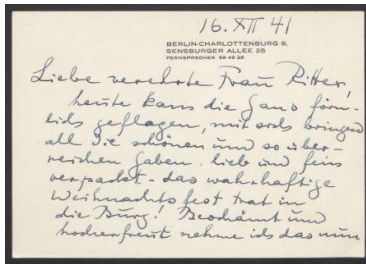 16. XII 41
BERLIN-CHARLOTTENBURG 9,
SENSBURGER ALLEE 25
FERNSPRECHER 99 48 29
Liebe verehrte Frau Ritter,
heute kam die Gans förm-
lich geflogen, mit sich bringend
all die schönen und so über-
reichen Gaben, lieb und fein
verpackt - das wahrhaftige
Weihnachtsfest trat in
die Burg! Beschämt und
hocherfreut nehme ich das nun